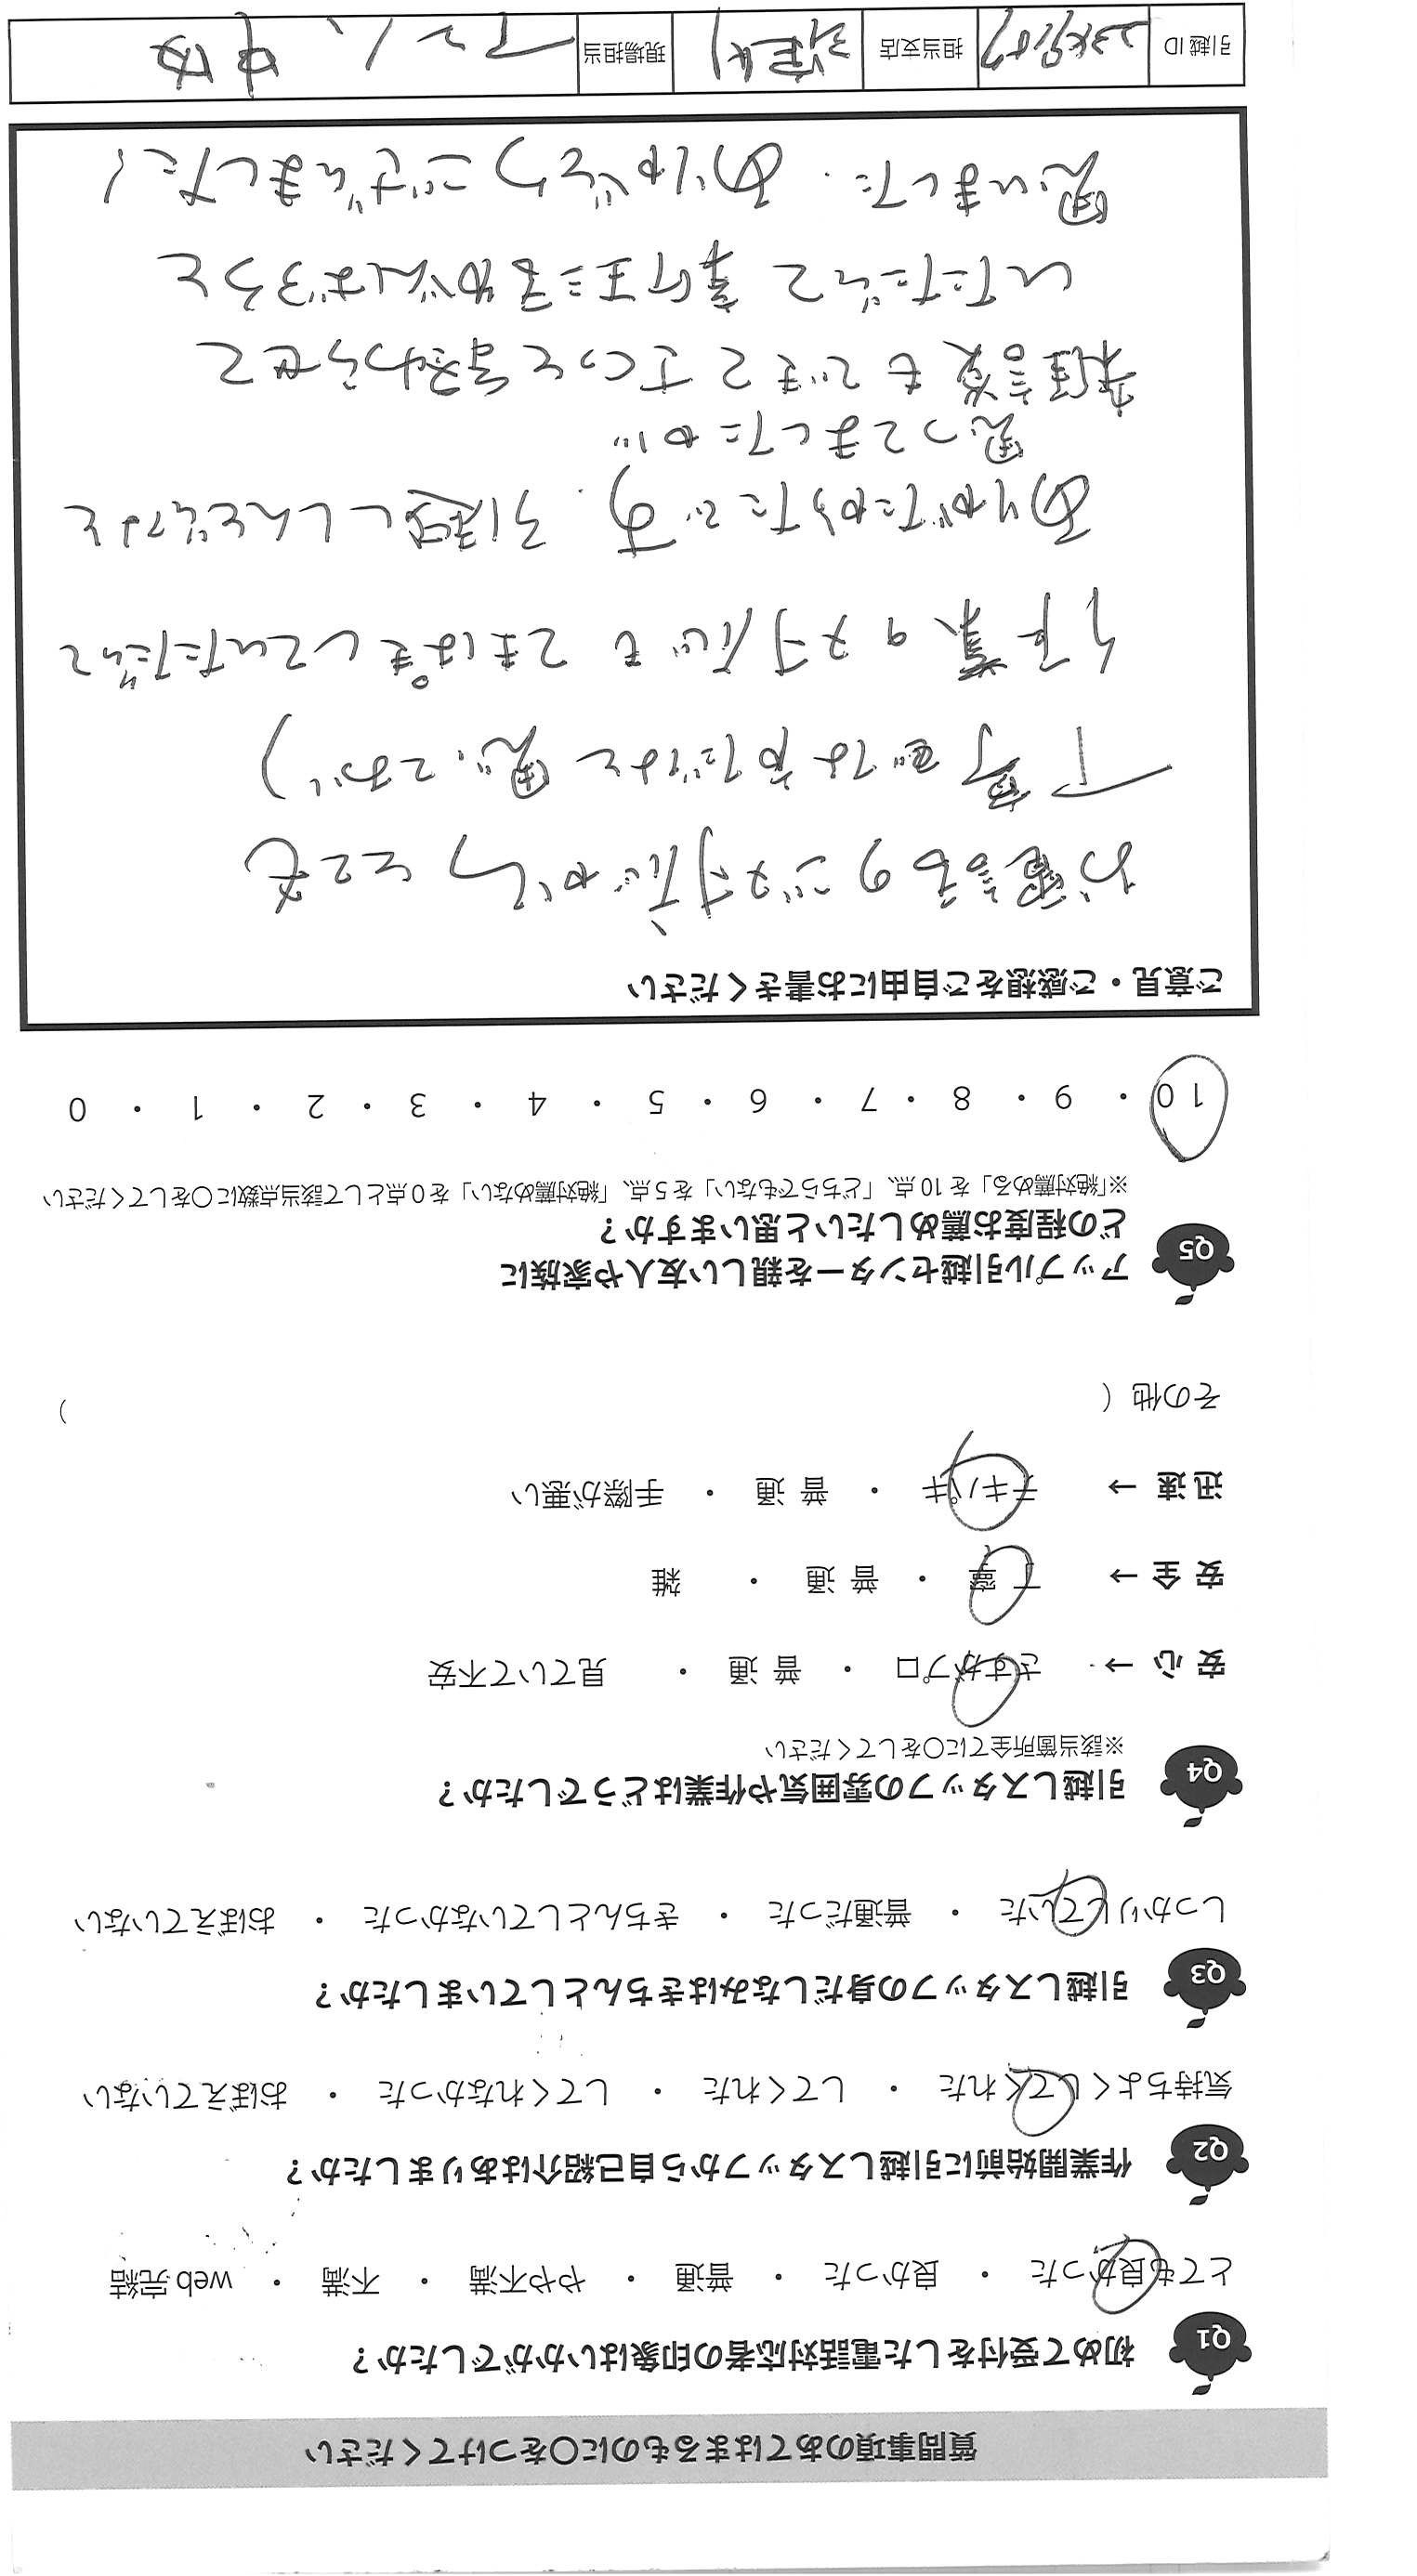 質問事項のあてはまるものに○をつけてください
Q1 初めて受付をした電話対応者の印象はいかがでしたか？
とても良かった ・ 良かった ・ 普通 ・ やや不満 ・ 不満 ・ web完結
Q2 作業開始前に引越しスタッフから自己紹介はありましたか？
気持ちよくしてくれた ・ してくれた ・ してくれなかった ・ おぼえていない
Q3 引越しスタッフの身だしなみはきちんとしていましたか？
しっかりしていた ・ 普通だった ・ きちんとしていなかった ・ おぼえていない
Q4 引越しスタッフの雰囲気や作業はどうでしたか？
※該当箇所全てに○をしてください
安心 → さすがプロ ・ 普通 ・ 見ていて不安
安全 → 丁寧 ・ 普通 ・ 雑
迅速 → テキパキ ・ 普通 ・ 手際が悪い
その他（ ）
Q5 アップル引越センターを親しい友人や家族に
どの程度お薦めしたいと思いますか？
※「絶対薦める」を10点、「どちらでもない」を5点、「絶対薦めない」を0点として該当点数に○をしてください
10 ・ 9 ・ 8 ・ 7 ・ 6 ・ 5 ・ 4 ・ 3 ・ 2 ・ 1 ・ 0
ご意見・ご感想をご自由にお書きください
お電話のご対応からとても
丁寧
作業の対応もてきぱきしていただいて
ありがたかったです。引越ししんどいなと
思ってましたが
雑談もできてすごく
いただいて
思いました。ありがとうございました！
引越ID
担当支店
現場担当